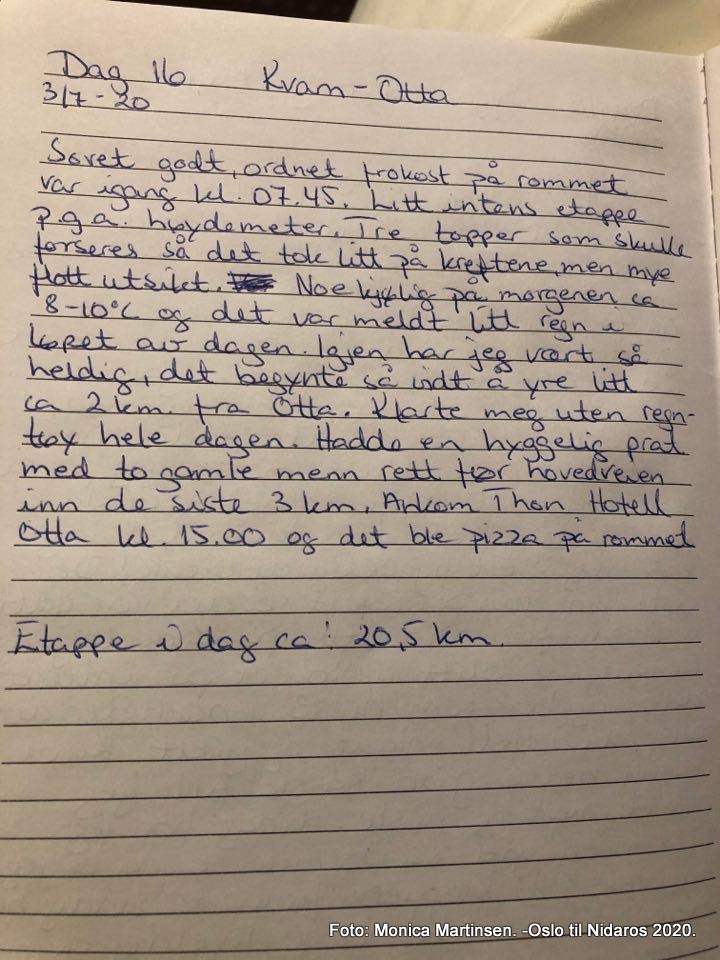 Dag 16 Kvam - Otta
3/7 - 20
Sovet godt, ordnet frokost på rommet
var igang kl. 07.45. Litt intens etappe
p.g.a. høydemeter. Tre topper som skulle
forseres så det tok litt på kreftene, men mye
flott utsikt. Noe kjølig på morgenen ca
8-10°C og det var meldt litt regn i
løpet av dagen. Igjen har jeg vært så
heldig, det begynte så vidt å yre litt
ca 2 km. fra Otta. Klarte meg uten regn-
tøy hele dagen. Hadde en hyggelig prat
med to gamle menn rett før hovedveien
inn de siste 3 km. Ankom Thon Hotell
Otta kl. 15.00 og det ble pizza på rommet
Etappe i dag ca: 20,5 km.
Foto: Monica Martinsen. -Oslo til Nidaros 2020.